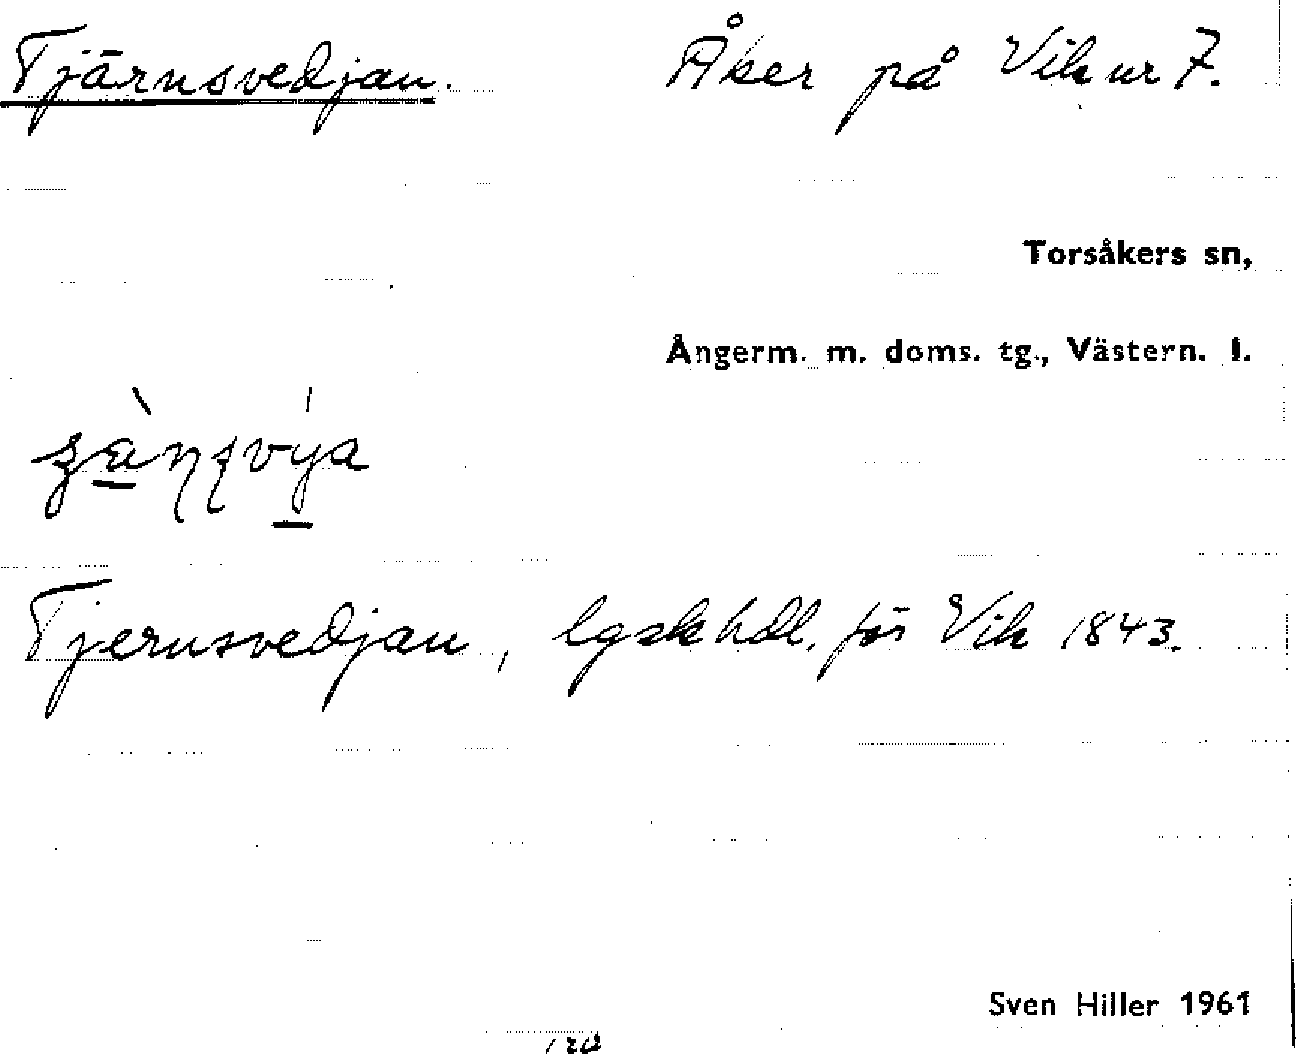 Tjärnsvedjan. Åker på Vik nr 7.
Torsåkers sn,
Ångerm. m. doms. tg., Västern. l.
Tjernsvedjan, lgskhdl. för Vik 1843.
Sven Hiller 1961